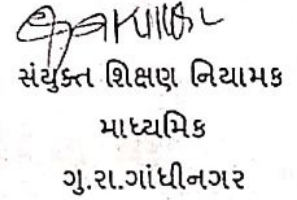 સંયુક્ત શિક્ષણ નિયામક
માધ્યમિક
ગુ.રા.ગાંધીનગર